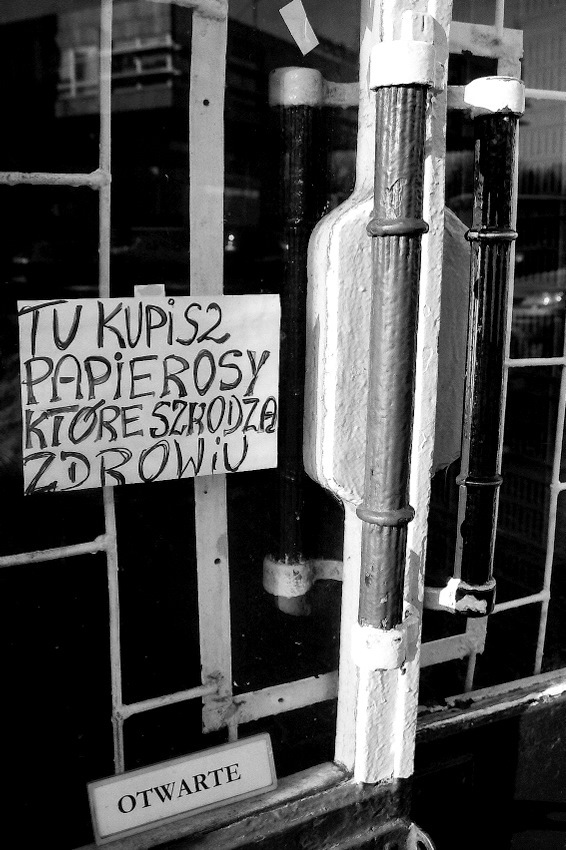 TU KUPiSZ
PAPiEROSY
KTÓRE SZKODZĄ
ZDROWiU
OTWARTE